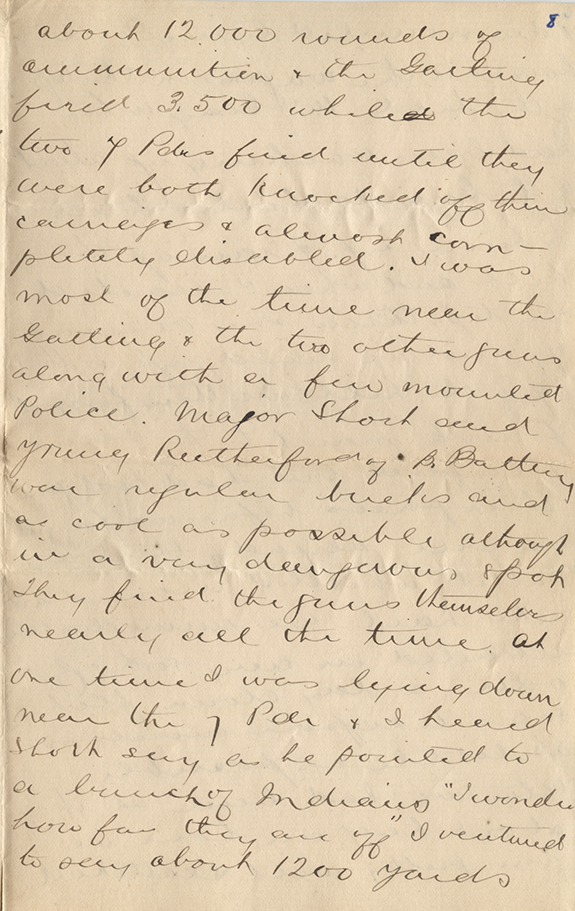 8
about 12.000 rounds of
ammunition & the Gatling
fired 3.500 while the
two 7 Pdrs fired until they
were both knocked off their
carriages & almost com-
pletely disabled. I was
most of the time near the
Gatling & the two other guns
along with a few mounted
Police. Major Short and
young Rutherford of B. Battery
were regular bricks and
as cool as possible although
in a very dangerous spot
They fired the guns themselves
nearly all the time. At
one time I was lying down
near the 7 Pdr & I heard
Short say as he pointed to
a bunch of Indians "I wonder
how far they are off" I ventured
to say about 1200 yards